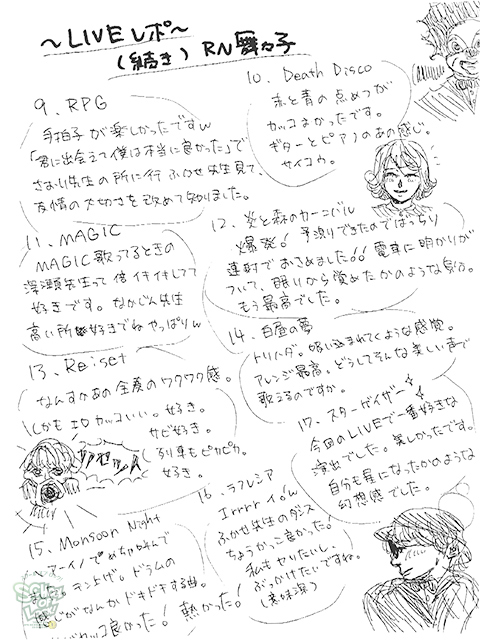 〜LIVEレポ〜
(続き) RN舞々子
9. RPG
手拍子が楽しかったですw
「君に出会えて僕は本当に良かった」で
さおり先生の所に行くふかせ先生見て、
友情の大切さを改めて知りました。
10. Death Disco
赤と青の点めつが
カッコよかったです。
ギターとピアノのあの感じ。
サイコウ。
11. MAGIC
MAGIC歌ってるときの
深瀬先生って倍イキイキしてて
好きです。なかじん先生
高い所好きでねやっぱりw
12. 炎と森のカーニバル
爆発!予測りできたのでばっちり
連射でおさめました!!電車に明かりが
ついて、眠りから覚めたかのような気分。
もう最高でした。
13. Re:set
なんすかあの全度のワクワク感。
しかもエロカッコいい。好き。
サビ好き。
列車もピカピカ。
好き。
14. 白昼の夢
トリハダ。吸い込まれてくような感覚。
アレンジ最高。どうしてそんな美しい声で
歌えるのですか。
15. Monsoon Night
ました。テン上げ。ドラムの
感じがなんかドキドキする曲。
カッコ良かった! 熱かった!
16. ラフレシア
Irrrrイw
ふかせ先生のダンス
ちょうかっこ良かった!
私もヤリたいし、
ぶっかけたいですね。
(意味深)
17. スターゲイザー
今回のLIVEで一番好きな
演出でした。美しかったです。
自分も星になったかのような
幻想感でした。